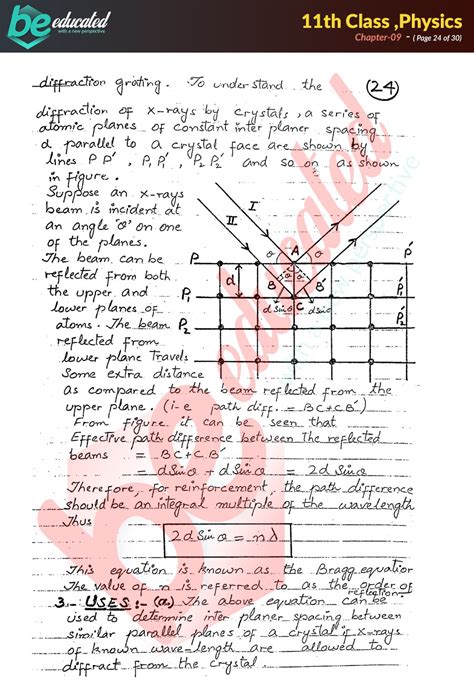 be educated
with a new perspective
11th Class ,Physics
Chapter-09 - ( Page 24 of 30)
diffraction grating. To understand the (24)
diffraction of x-rays by crystals, a series of
atomic planes of constant inter planer spacing
d parallel to a crystal face are shown by
lines P P′, P₁P₁′, P₂P₂′ and so on as shown
in figure.
Suppose an x-rays
beam is incident at
an angle 'θ' on one
of the planes.
The beam can be
reflected from both
the upper and
lower planes of
atoms. The beam
reflected from
lower plane travels
Some extra distance
I
II
θ A θ
P P′
d
B B′
P₁ C P₁′
d sinθ d sinθ
P₂ P₂′
as compared to the beam reflected from the
upper plane. (i-e path diff. = BC+CB′)
From figure it can be seen that
Effective path difference between the reflected
beams = BC + CB′
= dSinθ + dSinθ = 2dSinθ
Therefore, for reinforcement, the path difference
should be an integral multiple of the wavelength
Thus
2dSinθ = nλ
This equation is known as the Bragg equation
The value of n is referred to as the order of
reflection.
3.- USES :- (a) The above equation can be
used to determine inter planer spacing between
similar parallel planes of a crystal if x-rays
of known wave-length are allowed to
diffract from the crystal.
be educated